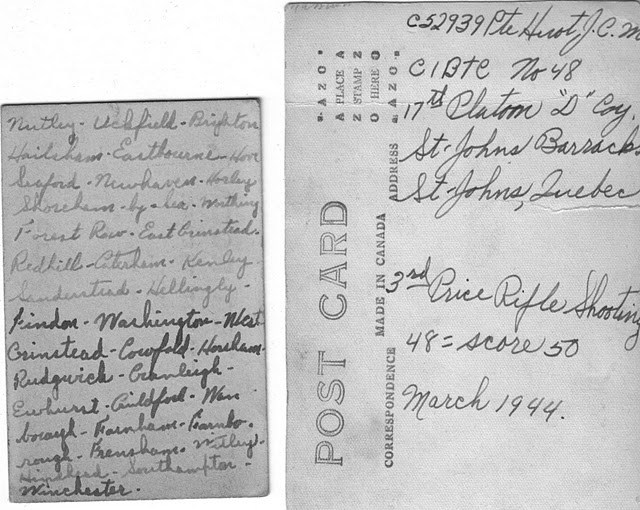 Nutley - Uckfield - Brighton
Hailsham - Eastbourne - Hove
Seaford - Newhaven - Horley
Shoreham - by - Sea - Worthing
Forest Row - East Grinstead.
Redhill - Caterham - Kenley
Sanderstead - Hellingly -
Findon - Washington - West
Grinstead - Cowfold - Horsham
Rudgwick - Cranleigh -
Ewhurst - Guildford - Wan
borough - Farnham - Farnbo.
rough - Frensham - Witley -
Hindhead - Southampton -
Winchester.
C52939 Pte Huot J.C.M
CIBTC No 48
17th Platoon "D" Coy.
St-Johns Barracks
St-Johns, Quebec
3rd Price Rifle Shooting
48 = score 50
March 1944.
POST CARD
CORRESPONDENCE MADE IN CANADA ADDRESS
AZO
A PLACE A
Z STAMP Z
O HERE O
AZO